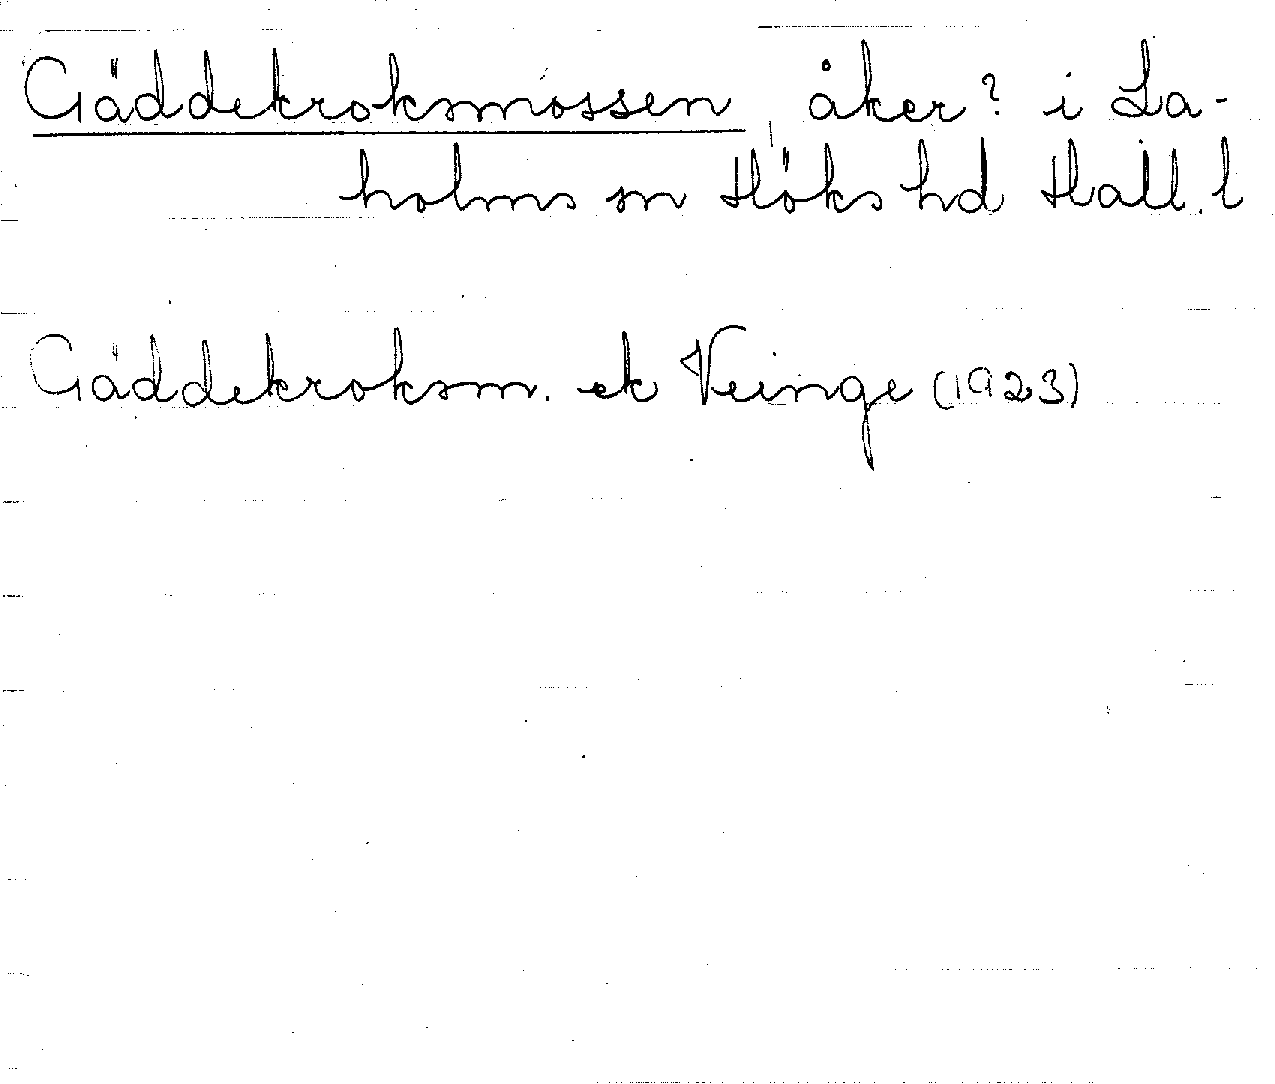 Gäddekroksmossen, åker? i La-
holms sn Höks hd Hall. l
Gäddekroksm. ek Veinge (1923)